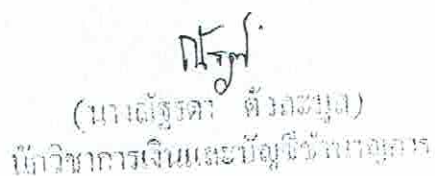 ณัฐ
(นางณัฐรดา ตัวละมูล)
นักวิชาการเงินและบัญชีชำนาญการ